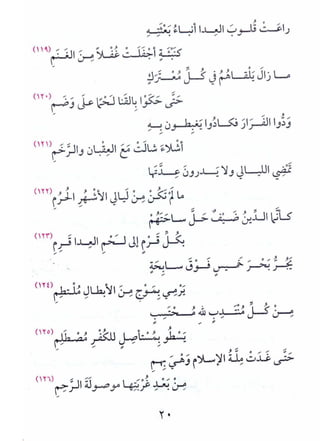 راعَتْ قُلوبَ العِدا أنباءُ بَعْثَتِهِ
كنَبْئَةٍ أجْفَلَتْ غُفْلاً مِنَ الغَنَمِ (١١٩)
ما زالَ يَلْقاهُمُ في كُلِّ مُعْتَرَكٍ
حَتَّى حَكَوْا بِالقَنا لَحْمًا على وَضَمِ (١٢٠)
وَدُّوا الفَرَارَ فكادُوا يَغبِطون بِهِ
أشْلاءَ شالَتْ مَعَ العِقْبانِ والرَّخَمِ (١٢١)
تَمْضي الليالي ولا يَدرونَ عِدَّتَها
ما لَمْ تَكُنْ مِنْ لَيالي الأشْهُرِ الحُرُمِ (١٢٢)
كأنَّما الدِّينُ ضَيْفٌ حَلَّ ساحَتَهُمْ
بِكُلِّ قَرْمٍ إلى لَحْمِ العِدا قَرِمِ (١٢٣)
يَجُرُّ بَحْرَ خَميسٍ فَوْقَ سابِحَةٍ
يَرْمِي بِمَوْجٍ مِنَ الأبطالِ مُلْتَطِمِ (١٢٤)
مِنْ كُلِّ مُنْتَدِبٍ لِلهِ مُحْتَسِبٍ
يَسْطُو بِمُسْتأصِلٍ لِلكُفْرِ مُصْطَلِمِ (١٢٥)
حَتَّى غَدَتْ مِلَّةُ الإسلامِ وَهْيَ بِهِمْ
مِنْ بَعْدِ غُرْبَتِها موصولَةَ الرَّحِمِ (١٢٦)
٢٠